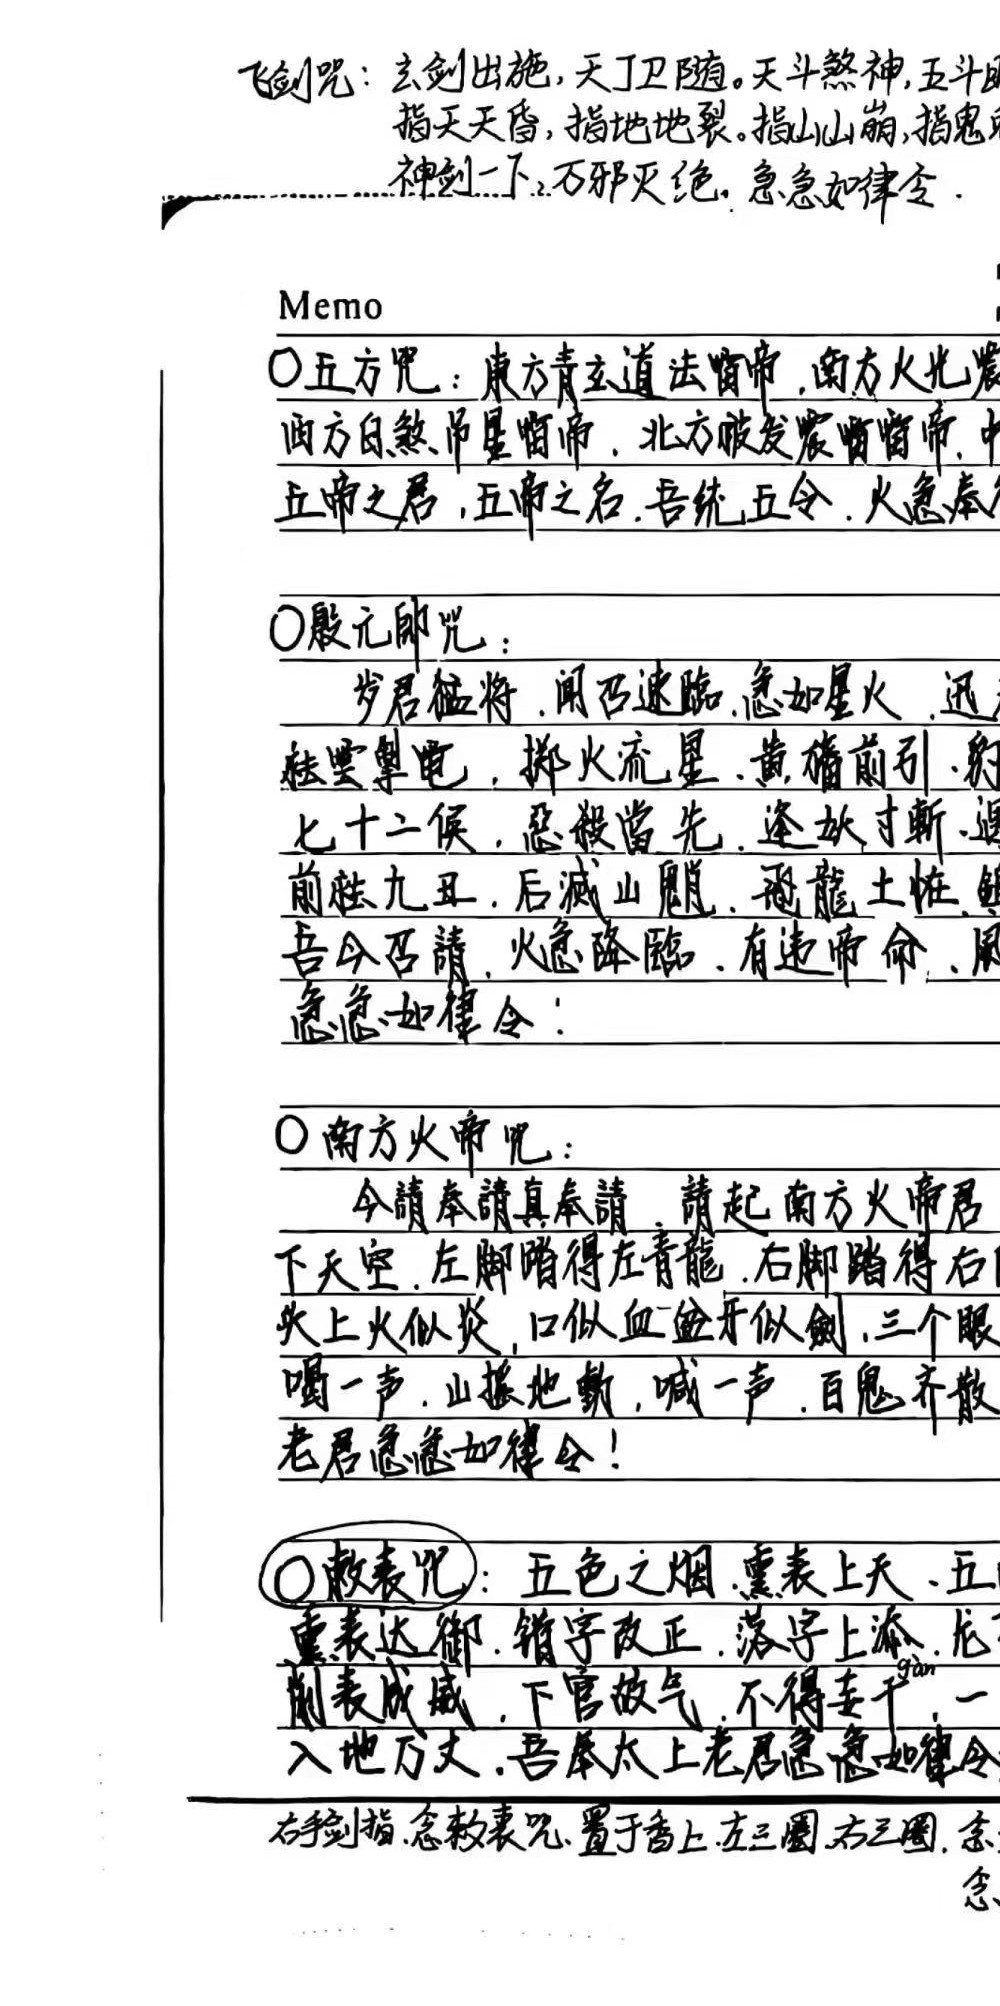 飞剑咒：玄剑出施，天丁卫随。天斗煞神，五斗
指天天昏，指地地裂。指山山崩，指鬼
神剑一下，万邪灭绝。急急如律令.
Memo
〇五方咒：東方青玄道法雷帝，南方火光
西方白煞吊星雷帝，北方披发震雷雷帝，中
五帝之君，五帝之名，吾统五令，火急奉
〇殷元帥咒：
岁君猛将，闻召速臨，急如星火，迅
雲掣电，掷火流星，黄旛前引，豹
七十二候，惡殺當先，逢妖寸斬，遇
前驱九丑，后滅山魈，飛龍土怪
吾今召請，火急降臨，有违帝命，風
急急如律令！
〇南方火帝咒：
今請奉請真奉請，請起南方火帝君
下天空，左脚踏得左青龍，右脚踏得右
头上火似炎，口似血盆牙似劍，三个眼
喝一声，山搖地動，喊一声，百鬼齐散
老君急急如律令！
〇敕表咒：五色之烟，熏表上天，五
熏表达御，错字改正，落字上添，尤
表成威，下官故气，不得妄干gàn，一
入地万丈，吾奉太上老君急急如律令
右手剑指，念敕表咒，置于香上，左三圈，右三圈，念
念